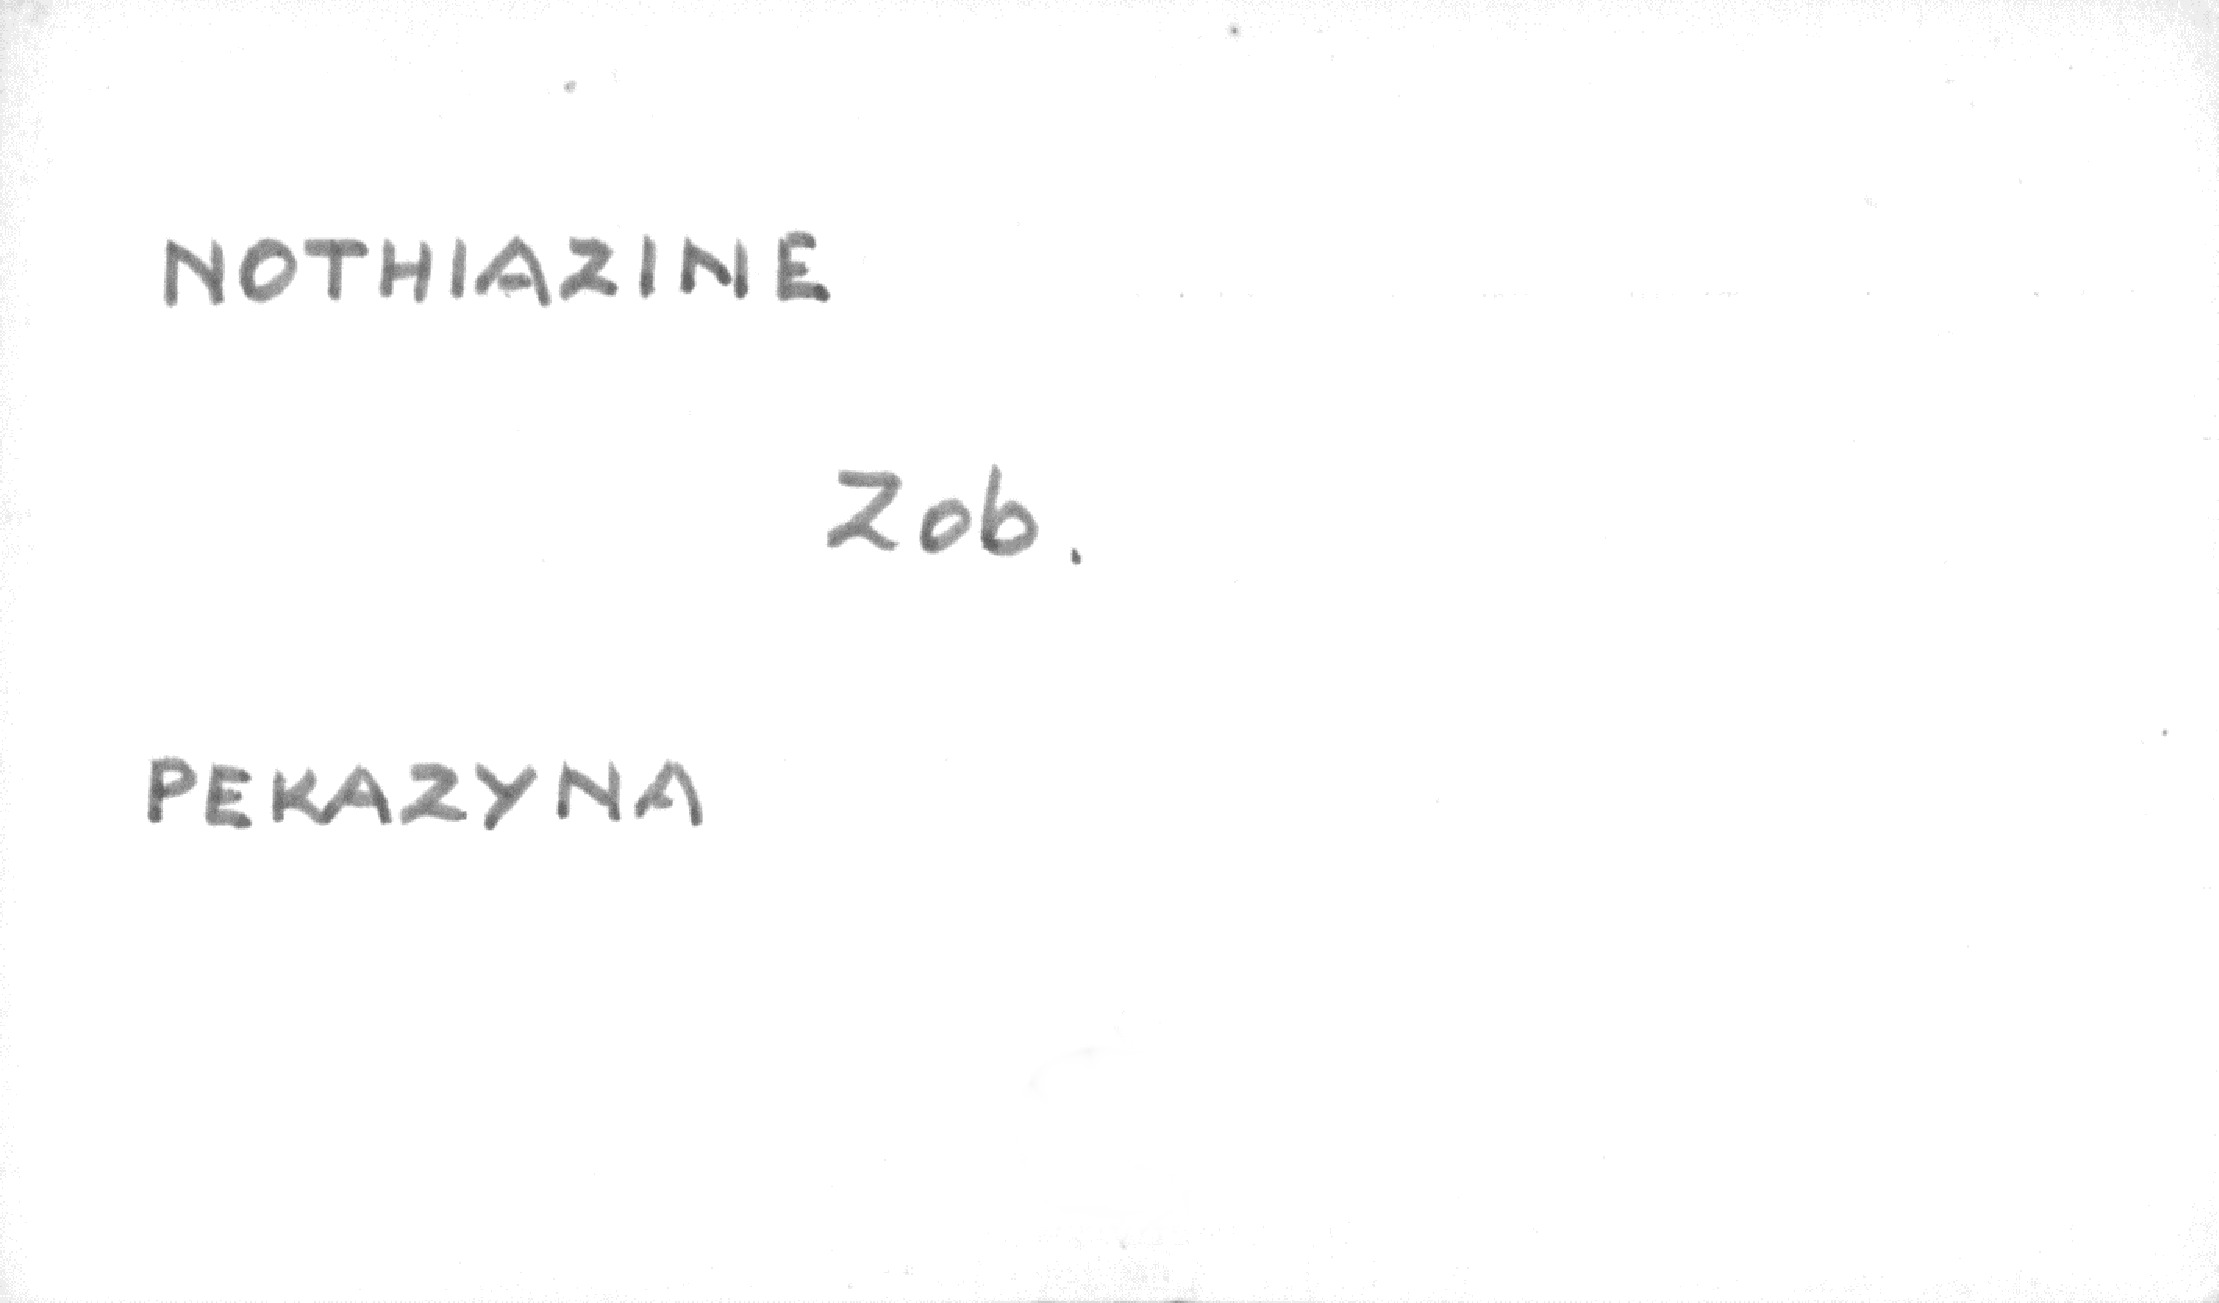 NOTHIAZINE
Zob.
PEKAZYNA